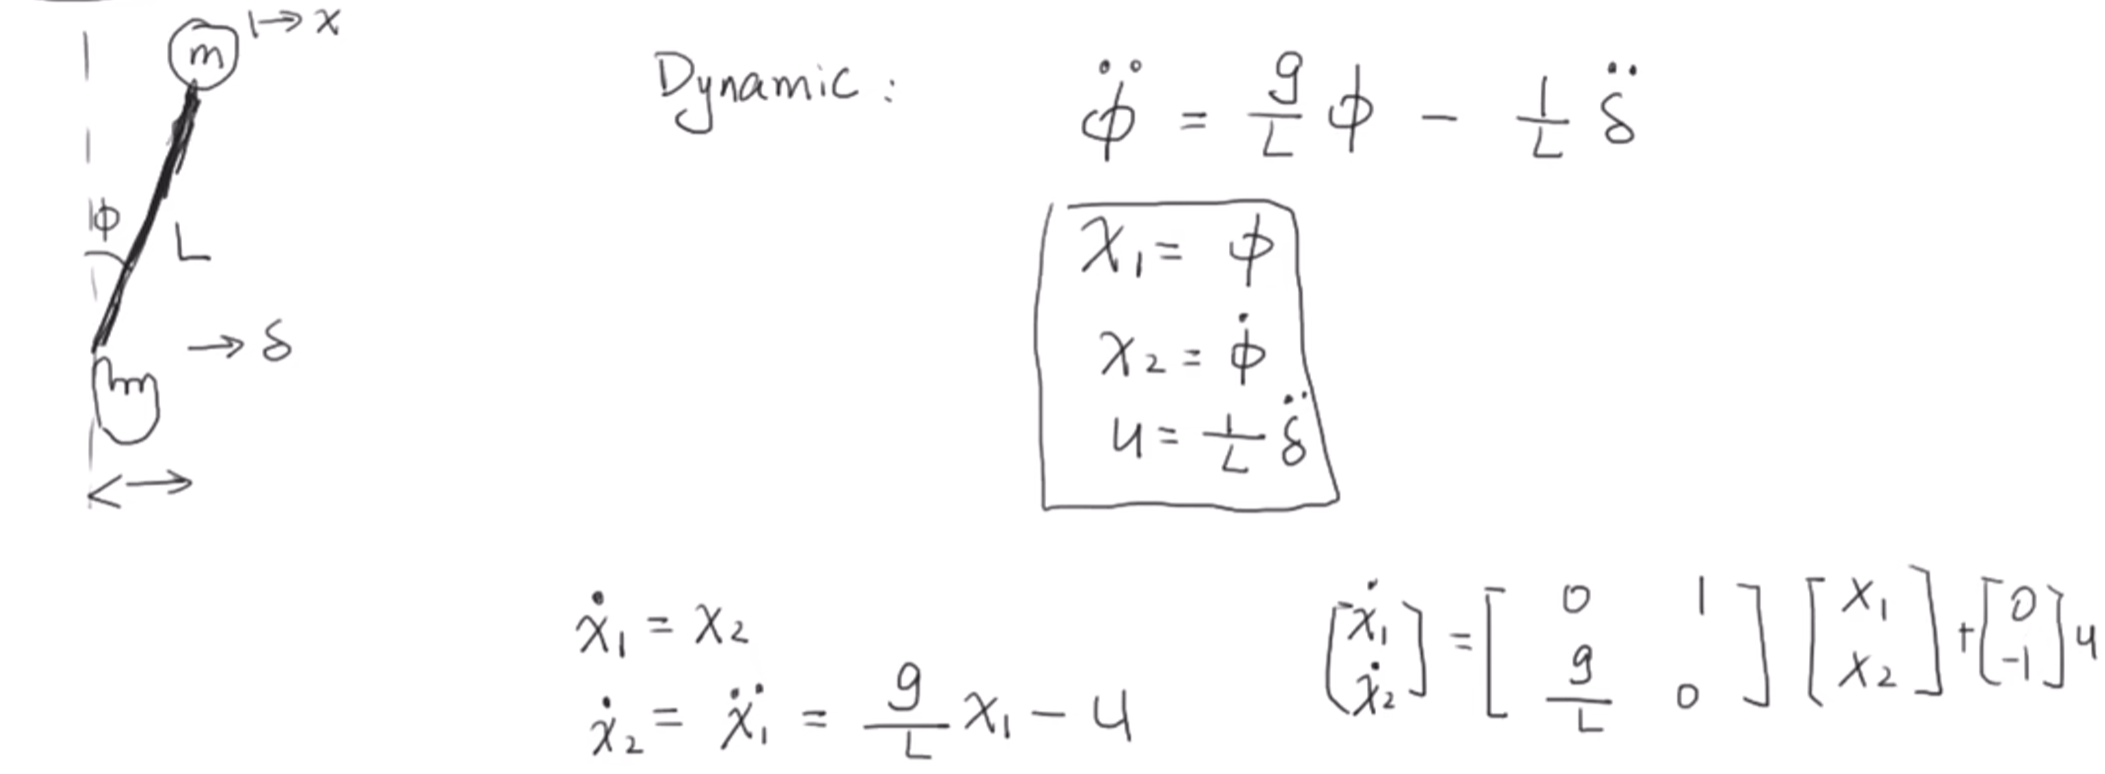 m ↦ x
ϕ
L
→ δ
Dynamic : ϕ̈ = g/L ϕ − 1/L δ̈
x₁ = ϕ
x₂ = ϕ̇
u = 1/L δ̈
ẋ₁ = x₂
ẋ₂ = ẍ₁ = g/L x₁ − u
[ẋ₁ ẋ₂] = [0 1; g/L 0] [x₁ x₂] + [0 −1] u